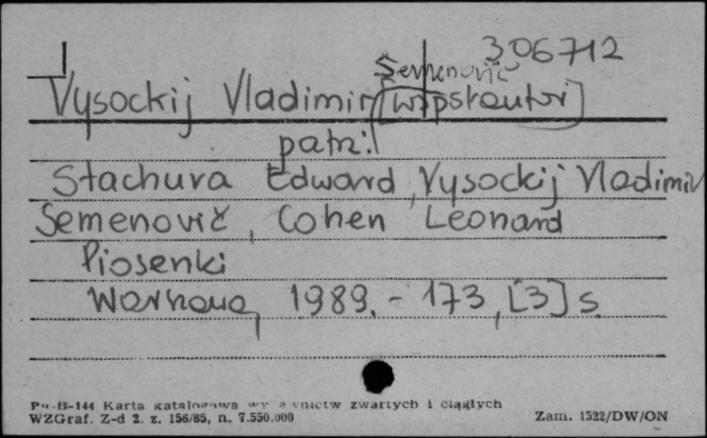 306712
Semenovič
Vysockij Vladimir [współautor]
patrz:
Stachura Edward, Vysockij Vladimir
Semenovič, Cohen Leonard
Piosenki
Warszawa, 1989. - 173, [3] s.
Pu-B-144 Karta katalogowa wydawnictw zwartych i ciągłych
WZGraf. Z-d 2. z. 156/85, n. 7.550.000
Zam. 1522/DW/ON